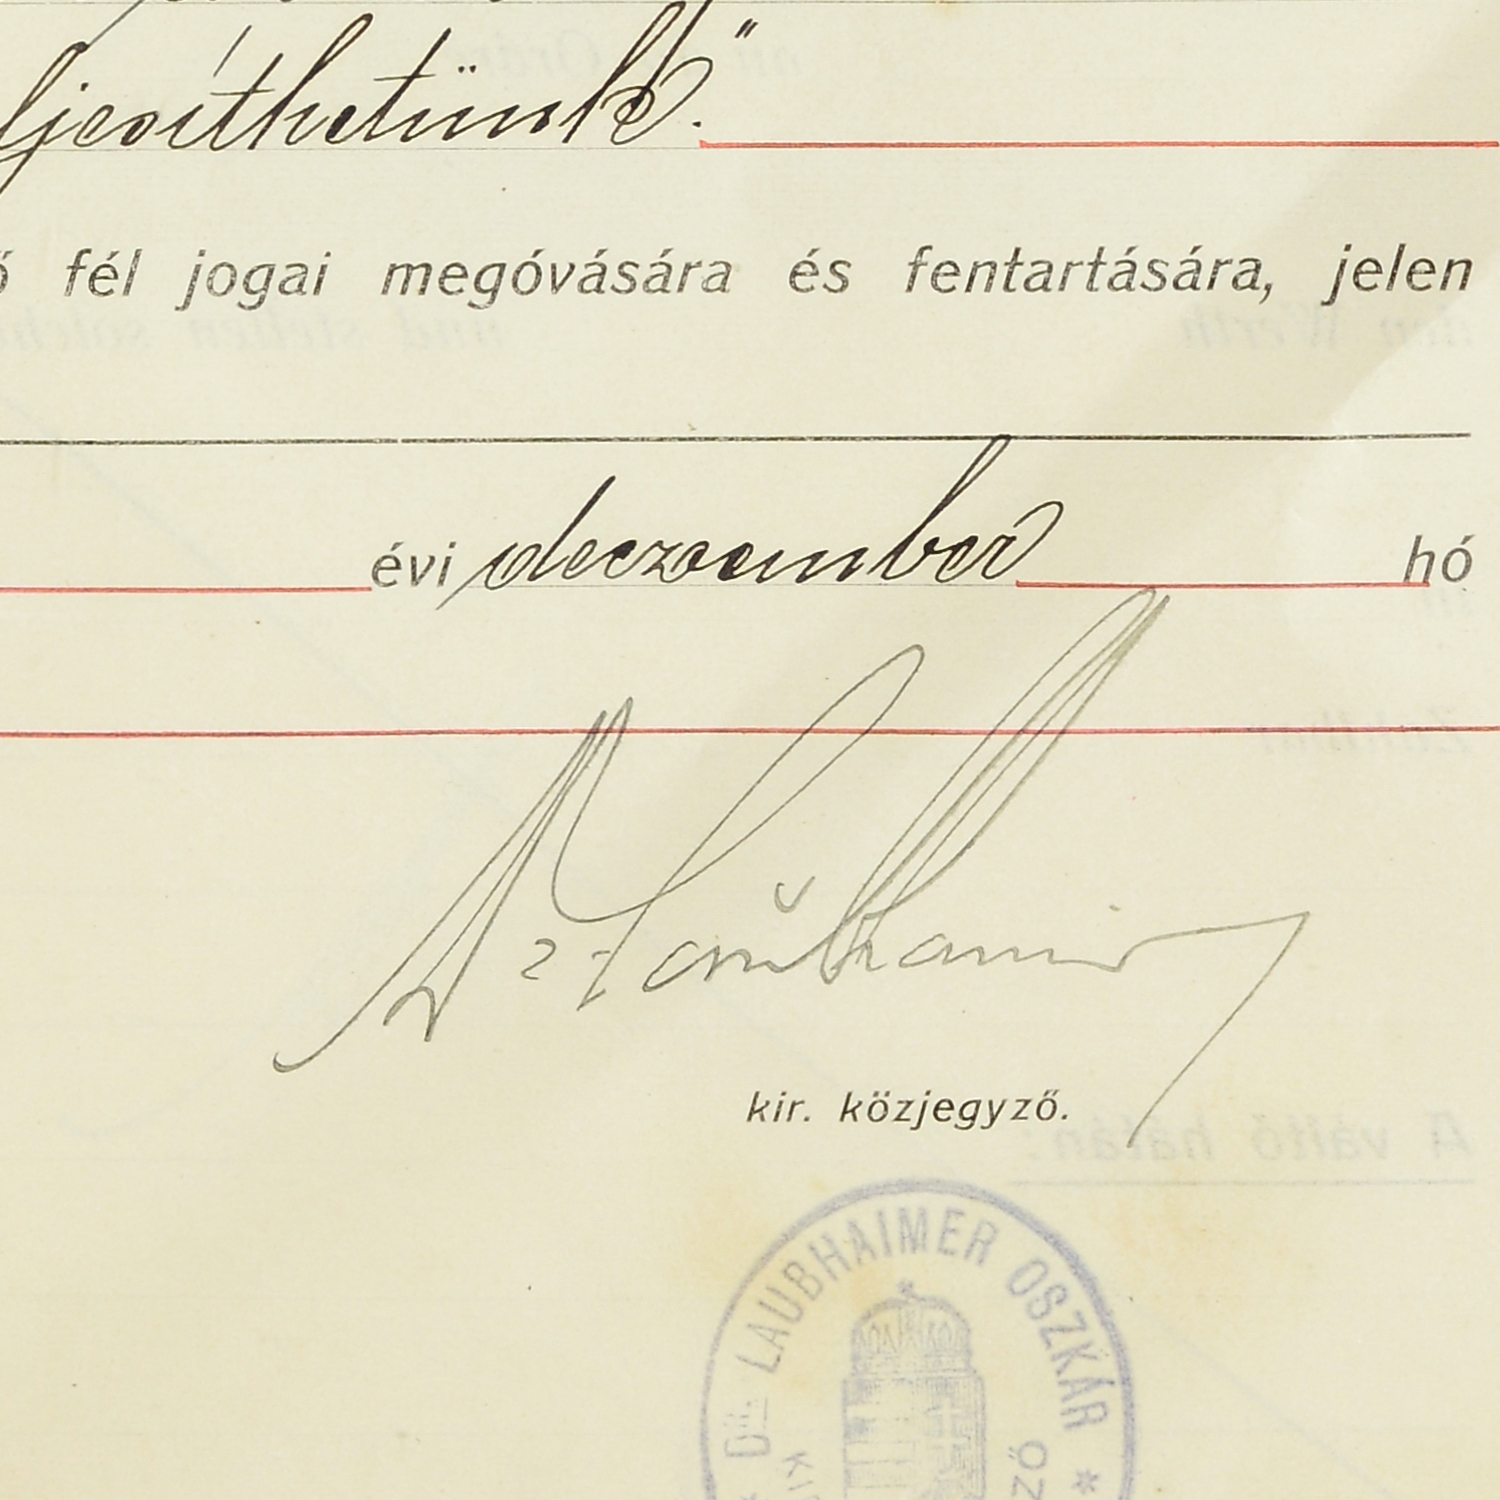 ljesíthetünk."
fél jogai megóvására és fentartására, jelen
évi deczember hó
Dr Laubhaimer
kir. közjegyző.
DR. LAUBHAIMER OSZKÁR *